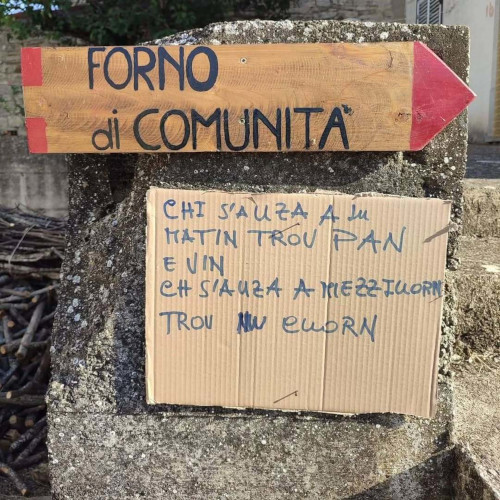 FORNO
di COMUNITÀ
CHI S'AUZA A LU
MATIN TROV PAN
E VIN
CH S'AUZA A MEZZIUORN
TROV NU CUORN